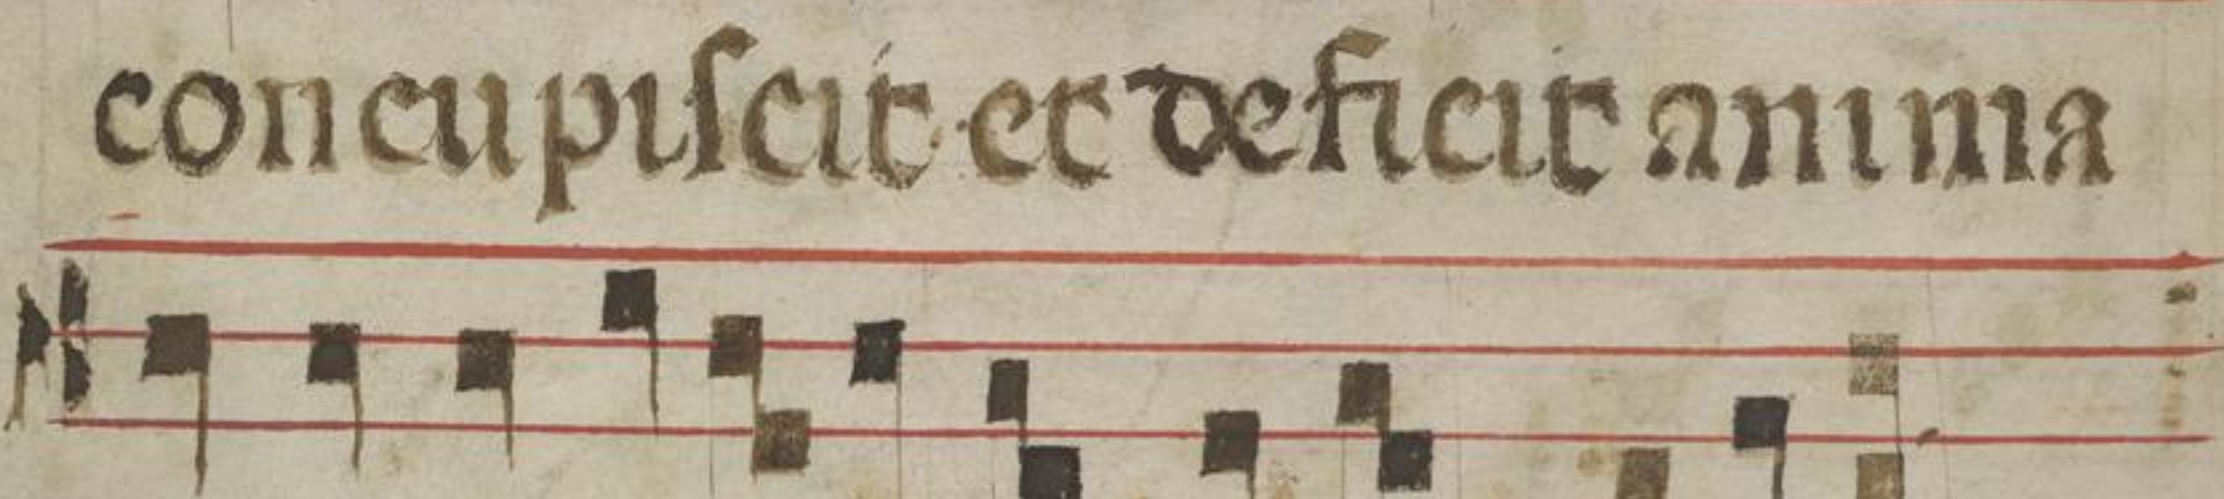 concupiſcit et deficit anima